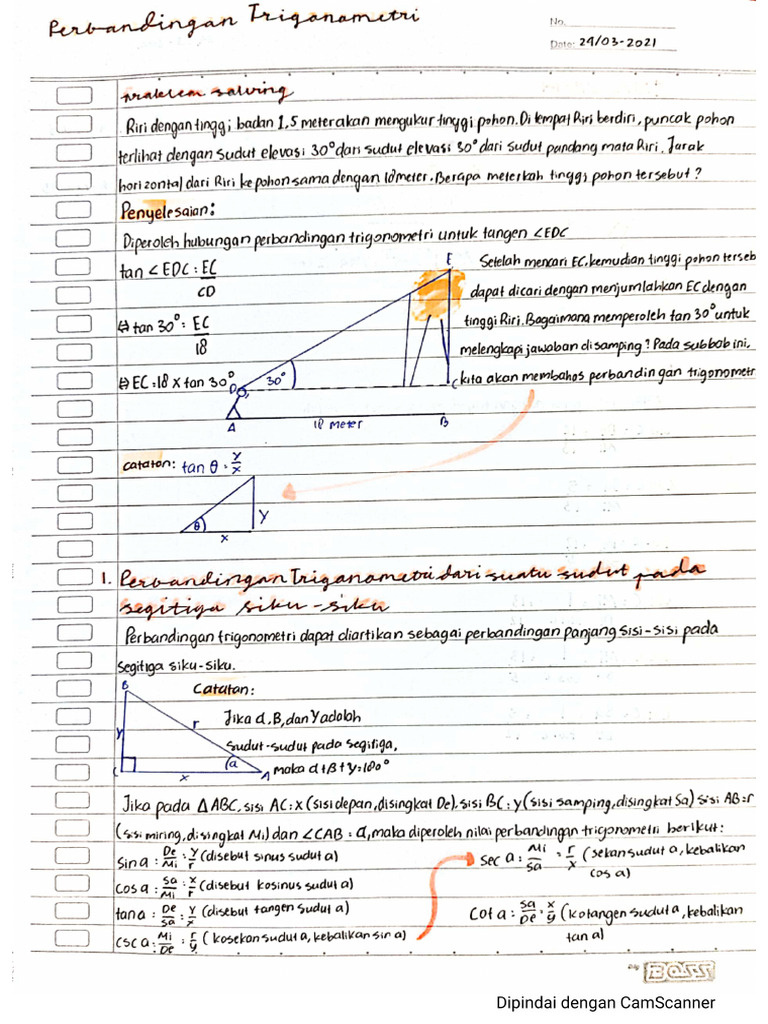 Perbandingan Trigonometri
No.
Date: 29/03-2021
problem solving
Riri dengan tinggi badan 1,5 meter akan mengukur tinggi pohon. Di tempat Riri berdiri, puncak pohon
terlihat dengan sudut elevasi 30° dari sudut elevasi 30° dari sudut pandang mata Riri. Jarak
horizontal dari Riri ke pohon sama dengan 18 meter. Berapa meterkah tinggi pohon tersebut?
Penyelesaian:
Diperoleh hubungan perbandingan trigonometri untuk tangen ∠EDC
tan ∠EDC = EC/CD
⇔ tan 30° = EC/18
⇔ EC = 18 x tan 30°
E
D
30°
C
A
18 meter
B
Setelah mencari EC, kemudian tinggi pohon terseb
dapat dicari dengan menjumlahkan EC dengan
tinggi Riri. Bagaimana memperoleh tan 30° untuk
melengkapi jawaban disamping? Pada subbab ini,
kita akan membahas perbandingan trigonometr
catatan: tan θ = y/x
θ
y
x
1. Perbandingan Trigonometri dari suatu sudut pada
segitiga siku-siku
Perbandingan trigonometri dapat diartikan sebagai perbandingan panjang sisi-sisi pada
segitiga siku-siku.
B
y
r
C
x
a
A
Catatan:
Jika α, B, dan γ adalah
sudut-sudut pada segitiga,
maka α+B+γ=180°
Jika pada △ABC, sisi AC = x (sisi depan, disingkat De), sisi BC = y (sisi samping, disingkat Sa) sisi AB = r
(sisi miring, disingkat Mi) dan ∠CAB = α, maka diperoleh nilai perbandingan trigonometri berikut:
sin a = De/Mi = y/r (disebut sinus sudut a)
cos a = Sa/Mi = x/r (disebut kosinus sudut a)
tan a = De/Sa = y/x (disebut tangen sudut a)
csc a = Mi/De = r/y (kosekan sudut a, kebalikan sin a)
sec a = Mi/Sa = r/x (sekan sudut a, kebalikan
cos a)
Cot a = Sa/De = x/y (kotangen sudut a, kebalikan
tan a)
BOSS
Dipindai dengan CamScanner